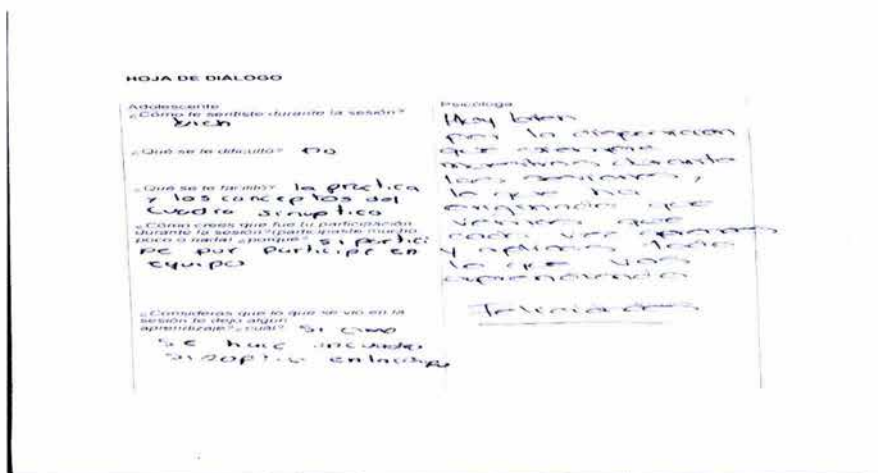 HOJA DE DIÁLOGO
Adolescente
¿Cómo te sentiste durante la sesión?
bien
¿Qué se te dificultó? no
¿Qué se te facilitó? la practica
y los conceptos del
cuadro sinuptico
¿Cómo crees que fue tu participación
durante la sesión?(participaste mucho
poco o nada) ¿porqué? si partici
pe por participe en
equipo
¿Consideras que lo que se vio en la
sesión te dejo algún
aprendizaje?¿cuál? si como
se hace
Psicóloga
Muy bien
por la disposición
que siempre
muestras durante
las sesiones,
lo que ha
originado que
veamos que
cada vez
y aplicas todo
lo que vas
aprendiendo
Felicidades